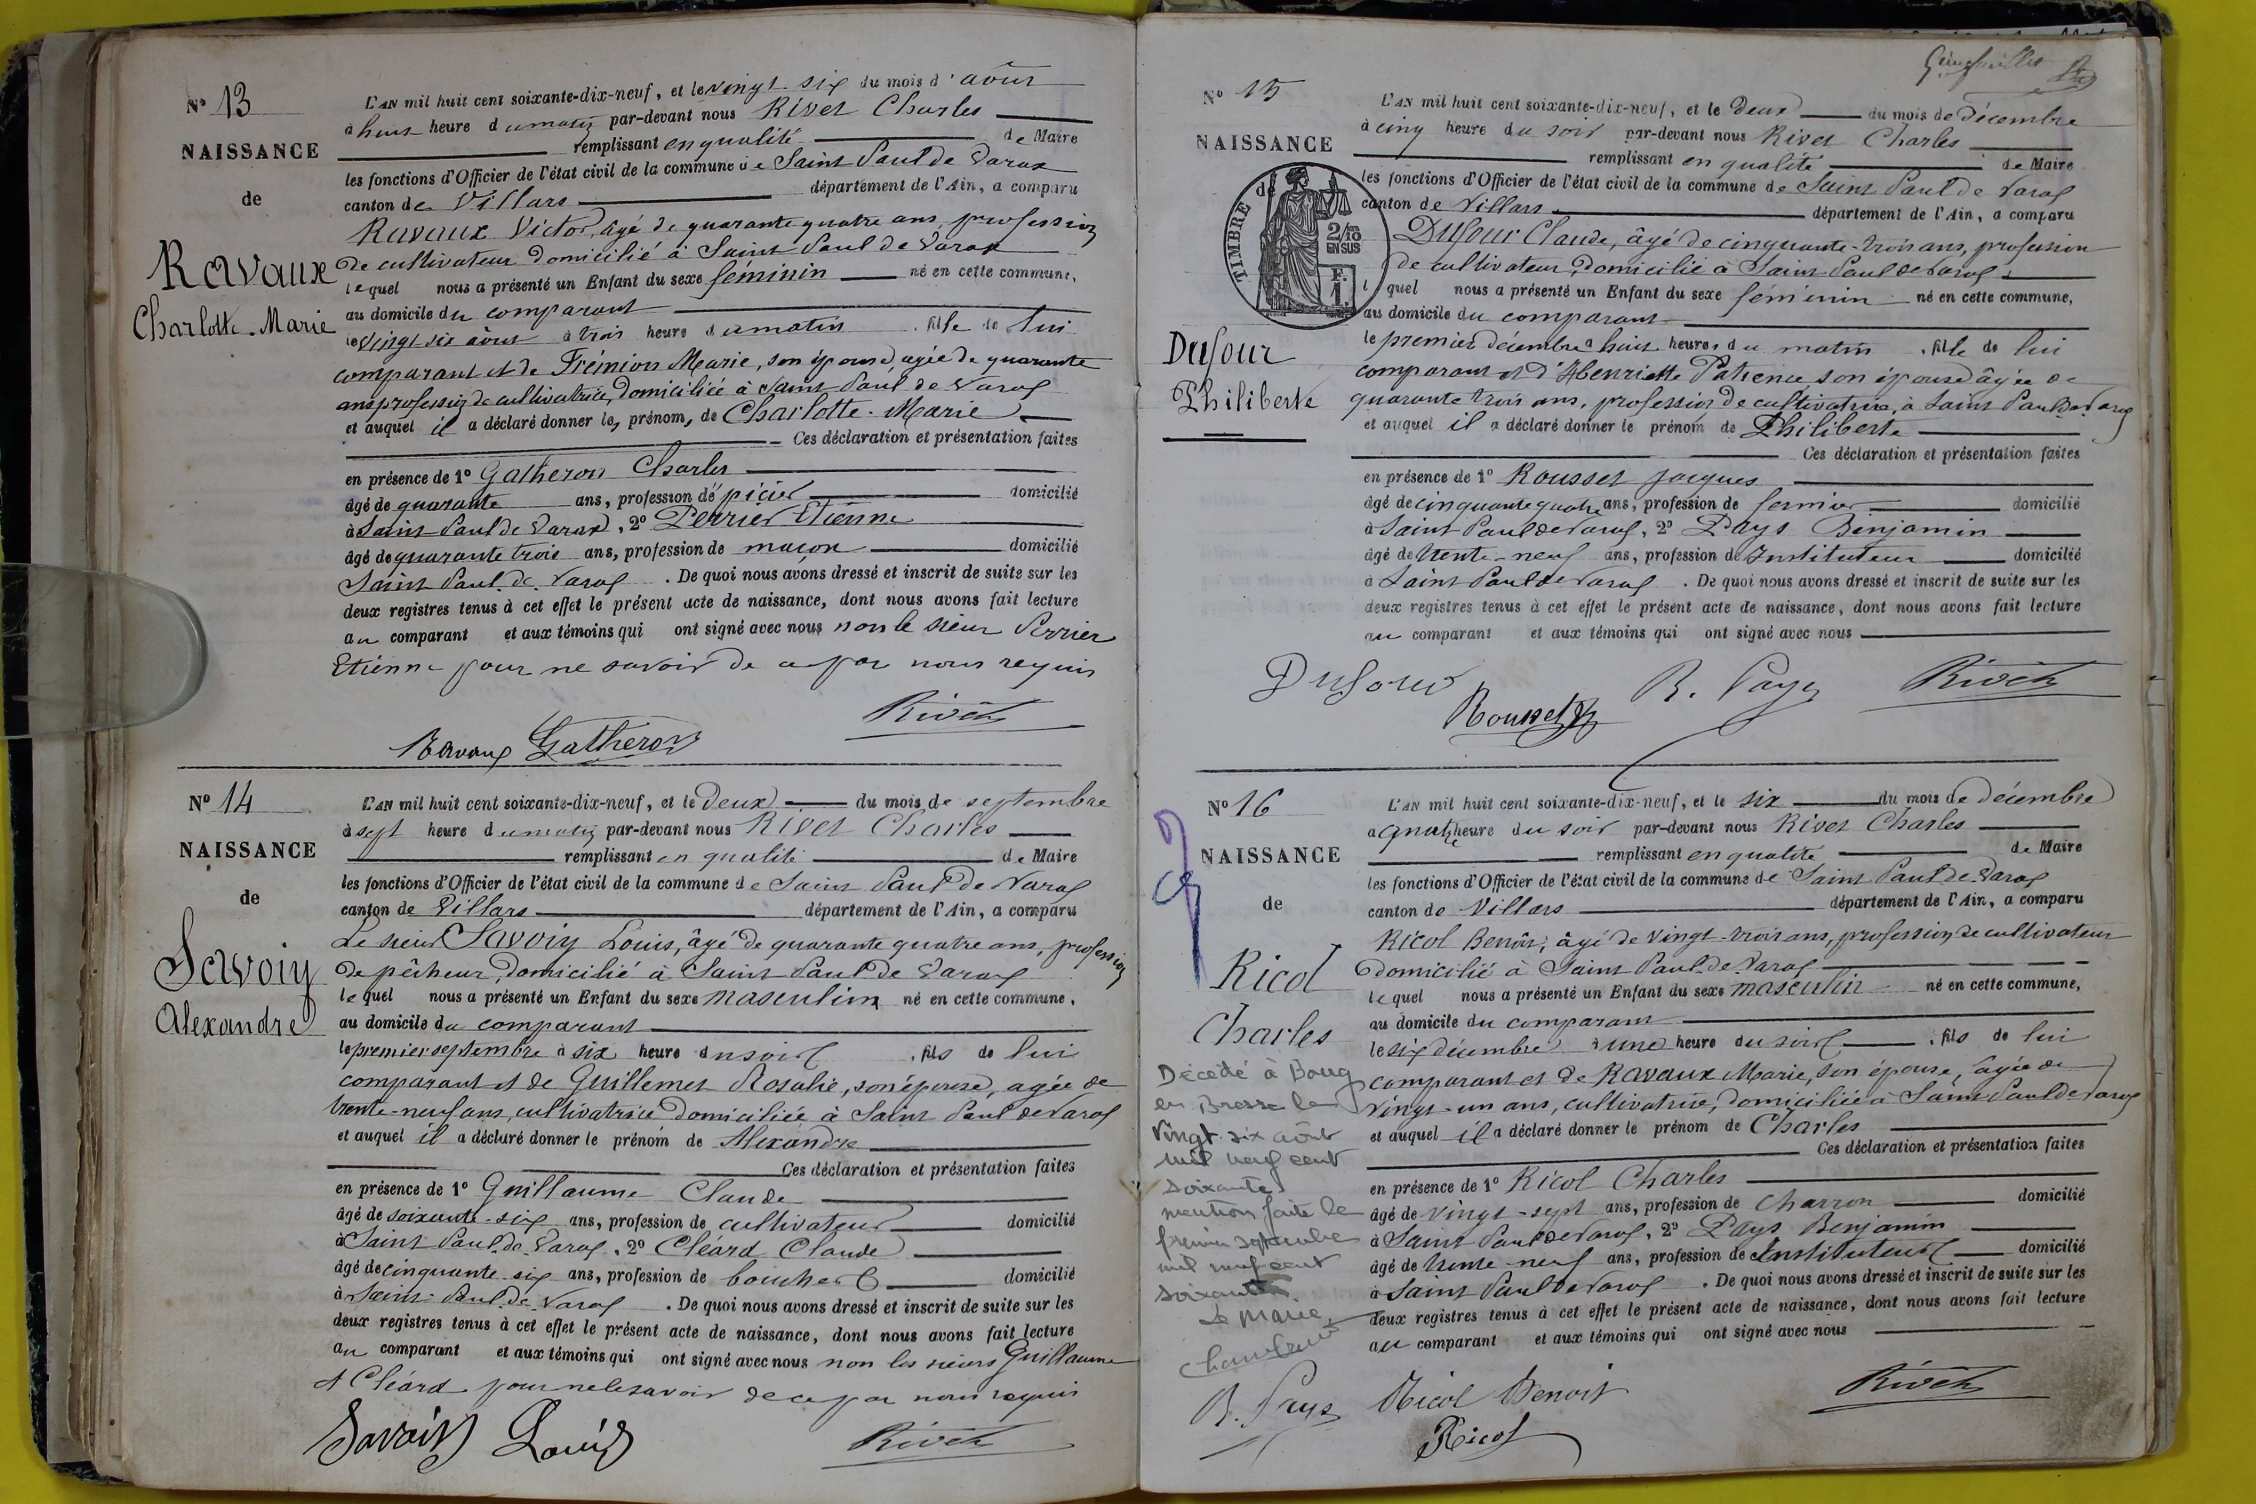 N° 13
NAISSANCE
de
Ravaux
Charlotte-Marie
L'AN mil huit cent soixante-dix-neuf, et le vingt six du mois d'aôut
à huit heure du matin par-devant nous Rivet Charles
remplissant en qualité de Maire
les fonctions d'Officier de l'état civil de la commune de Saint Paul de Varax
canton de Villars département de l'Ain, a comparu
Ravaux Victor, âgé de quarante quatre ans, profession
de cultivateur domicilié à Saint Paul de Varax
lequel nous a présenté un Enfant du sexe féminin né en cette commune,
au domicile du comparant
le vingt six aôut à trois heure du matin, fille de lui
comparant et de Frémion Marie, son épouse, agée de quarante
ans profession de cultivatrice, domiciliée à Saint Paul de Varax
et auquel il a déclaré donner les prénoms de Charlotte-Marie
Ces déclaration et présentation faites
en présence de 1° Gatheron Charles
âgé de quarante ans, profession d'épicier domicilié
à Saint Paul de Varax, 2° Perrier Etienne
âgé de quarante trois ans, profession de maçon domicilié
Saint Paul de Varax. De quoi nous avons dressé et inscrit de suite sur les
deux registres tenus à cet effet le présent acte de naissance, dont nous avons fait lecture
au comparant et aux témoins qui ont signé avec nous non le sieur Perrier
Etienne pour ne savoir de ce par nous requis
Rivet
Ravaux Gatheron
N° 14
NAISSANCE
de
Savoiy
Alexandre
L'AN mil huit cent soixante-dix-neuf, et le deux du mois de septembre
à sept heure du matin par-devant nous Rivet Charles
remplissant en qualité de Maire
les fonctions d'Officier de l'état civil de la commune de Saint Paul de Varax
canton de Villars département de l'Ain, a comparu
Le sieur Savoiy Louis, âgé de quarante quatre ans, profession
de pêcheur, domicilié à Saint Paul de Varax
lequel nous a présenté un Enfant du sexe masculin né en cette commune,
au domicile du comparant
le premier septembre à six heure du soir, fils de lui
comparant et de Guillemet Rosalie, son épouse, agée de
trente-neuf ans, cultivatrice domiciliée à Saint Paul de Varax
et auquel il a déclaré donner le prénom de Alexandre
Ces déclaration et présentation faites
en présence de 1° Guillaume Claude
âgé de soixante-six ans, profession de cultivateur domicilié
à Saint Paul de Varax, 2° Cléard Claude
âgé de cinquante-six ans, profession de boucher domicilié
à Saint-Paul de Varax. De quoi nous avons dressé et inscrit de suite sur les
deux registres tenus à cet effet le présent acte de naissance, dont nous avons fait lecture
au comparant et aux témoins qui ont signé avec nous non les sieurs Guillaume
et Cléard pour ne le savoir de ce par nous requis
Savoiy Louis Rivet
N° 15
NAISSANCE
de
TIMBRE
2/10 EN SUS
F. 1.
Dufour
Philiberte
L'AN mil huit cent soixante-dix-neuf, et le deux du mois de décembre
à cinq heure du soir par-devant nous Rivet Charles
remplissant en qualité de Maire
les fonctions d'Officier de l'état civil de la commune de Saint Paul de Varax
canton de Villars département de l'Ain, a comparu
Dufour Claude, âgé de cinquante-trois ans, profession
de cultivateur, domicilié à Saint Paul de Varax
lequel nous a présenté un Enfant du sexe féminin né en cette commune,
au domicile du comparant
le premier décembre à huit heures du matin, fille de lui
comparant et d'Henriette Patience, son épouse âgée de
quarante trois ans, profession de cultivatrice, à Saint Paul de Varax
et auquel il a déclaré donner le prénom de Philiberte
Ces déclaration et présentation faites
en présence de 1° Rousset Jacques
âgé de cinquante quatre ans, profession de fermier domicilié
à Saint Paul de Varax, 2° Pays Benjamin
âgé de trente-neuf ans, profession de Instituteur domicilié
à Saint Paul de Varax. De quoi nous avons dressé et inscrit de suite sur les
deux registres tenus à cet effet le présent acte de naissance, dont nous avons fait lecture
au comparant et aux témoins qui ont signé avec nous
Dufour Rousset B. Pays Rivet
N° 16
NAISSANCE
de
Ricol
Charles
Décédé à Bourg
en Bresse le
vingt-six août
mil neuf cent
soixante
mention faite le
premier septembre
mil neuf cent
soixante.
Le Maire
L'AN mil huit cent soixante-dix-neuf, et le six du mois de décembre
a quatre heure du soir par-devant nous Rivet Charles
remplissant en qualité de Maire
les fonctions d'Officier de l'état civil de la commune de Saint Paul de Varax
canton de Villars département de l'Ain, a comparu
Ricol Benôit, âgé de vingt-trois ans, profession de cultivateur
domicilié à Saint Paul de Varax
lequel nous a présenté un Enfant du sexe masculin né en cette commune,
au domicile du comparant
le six décembre à une heure du soir, fils de lui
comparant et de Ravaux Marie, son épouse, agée de
vingt-un ans, cultivatrice, domiciliée à Saint Paul de Varax
et auquel il a déclaré donner le prénom de Charles
Ces déclaration et présentation faites
en présence de 1° Ricol Charles
âgé de vingt-sept ans, profession de charron domicilié
à Saint Paul de Varax, 2° Pays Benjamin
âgé de trente-neuf ans, profession de Instituteur domicilié
à Saint Paul de Varax. De quoi nous avons dressé et inscrit de suite sur les
deux registres tenus à cet effet le présent acte de naissance, dont nous avons fait lecture
au comparant et aux témoins qui ont signé avec nous
B. Pays Ricol Benoit Rivet
Ricol